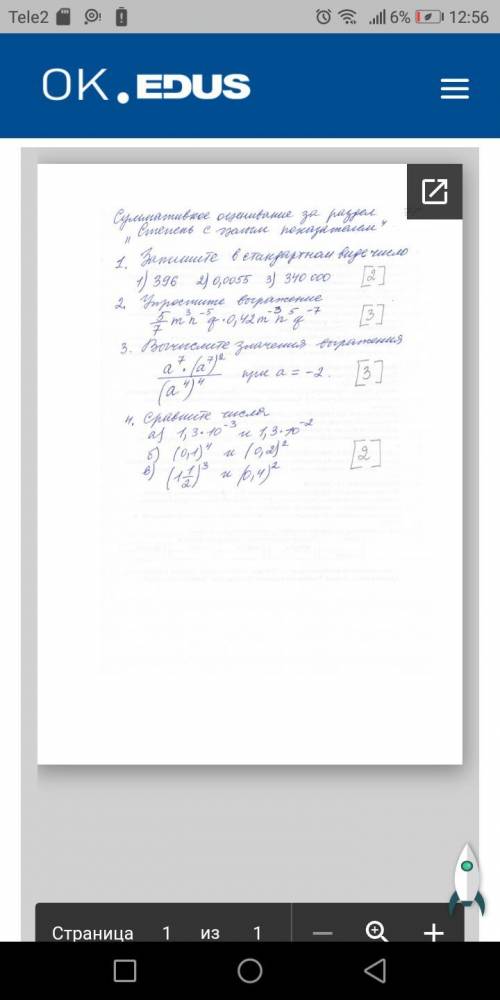 Tele2 6% 12:56
OK.EDUS
Суммативное оценивание за раздел
"Степень с целым показателем"
1. Запишите в стандартном виде число
1) 396 2) 0,0055 3) 340 000 [2]
2. Упростите выражение
5/7 m³n⁻⁵q · 0,42m⁻³n⁵q⁻⁷ [3]
3. Вычислите значения выражения
a⁷·(a⁷)²/(a⁴)⁴ при a = -2. [3]
4. Сравните числа
а) 1,3·10⁻³ и 1,3·10⁻²
б) (0,1)⁴ и (0,2)² [2]
в) (1 1/2)³ и (0,4)²
Страница 1 из 1